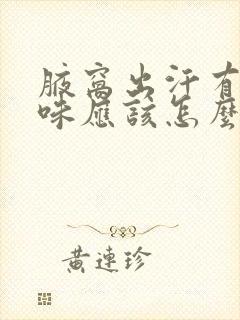 腋窩出汗有
味應該怎麼
黃連珍